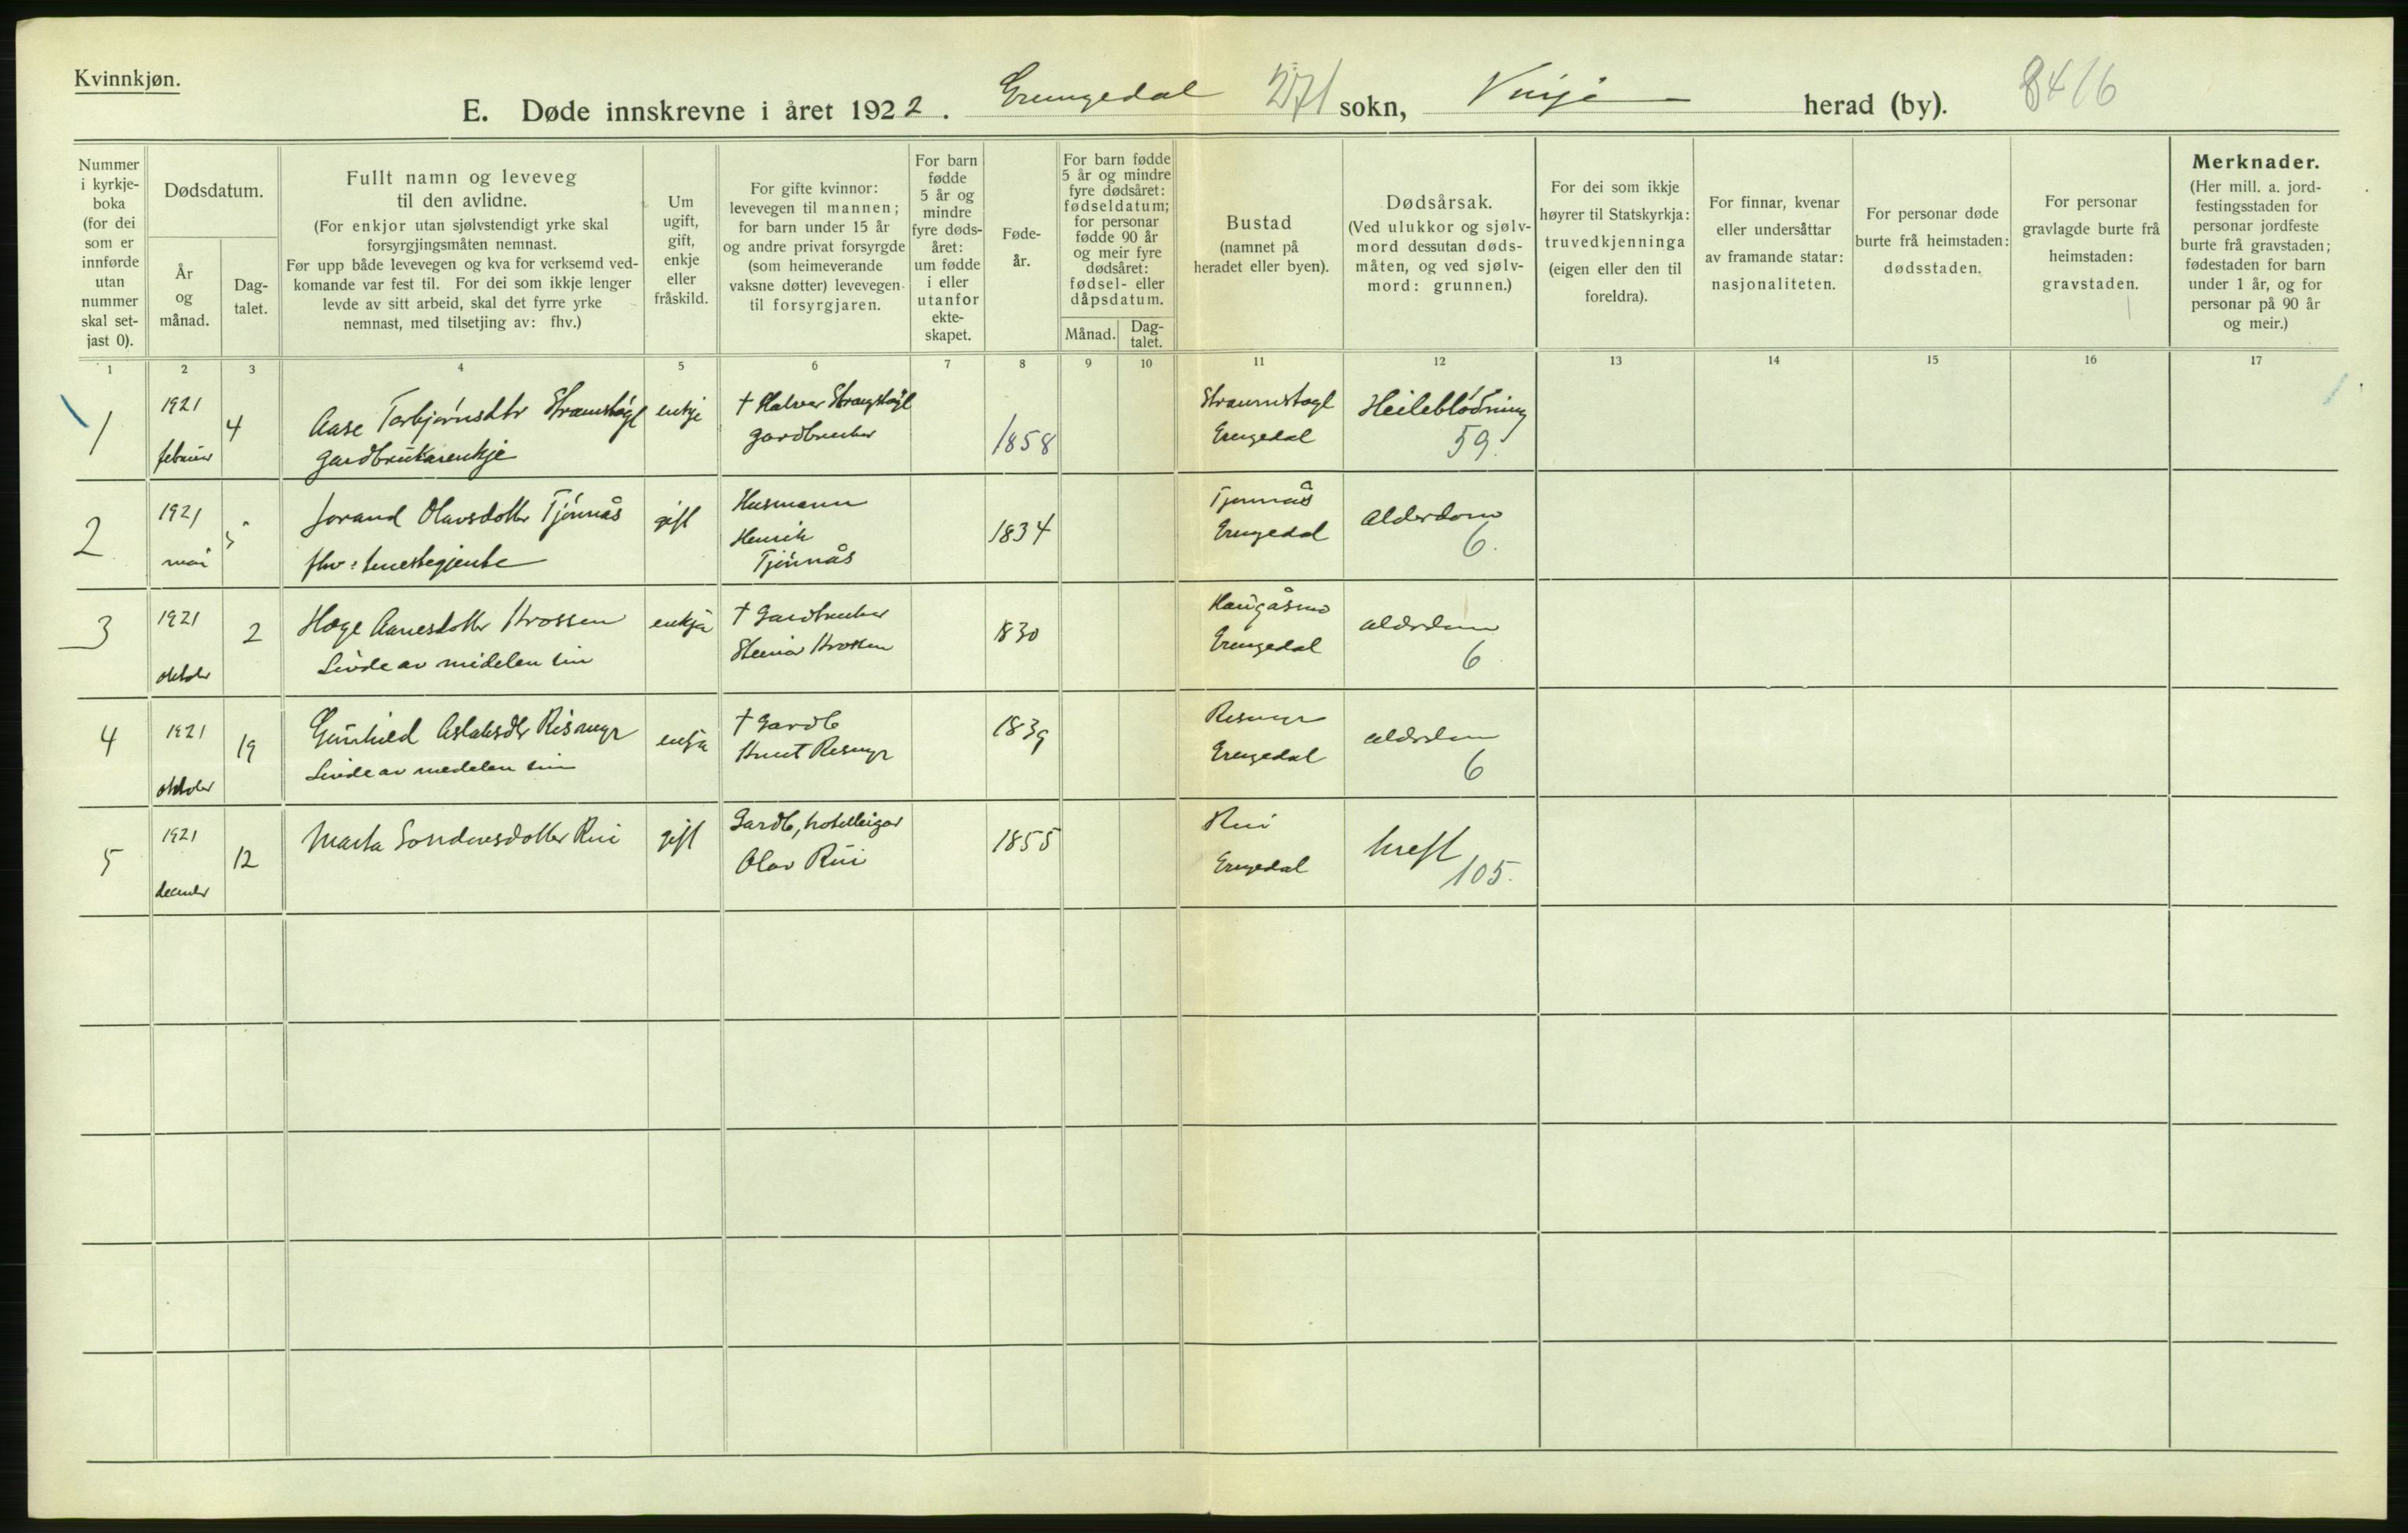 Kvinnkjøn.
E. Døde innskrevne i året 1922. Grungedal 271 sokn, Vinje herad (by). 8416
Nummer i kyrkje-boka (for dei som er innførde utan nummer skal set-jast 0).
Dødsdatum.
År og månad.
Dag-talet.
Fullt namn og leveveg til den avlidne.
(For enkjor utan sjølvstendigt yrke skal forsyrgjingsmåten nemnast.
Før upp både levevegen og kva for verksemd ved-komande var fest til. For dei som ikkje lenger levde av sitt arbeid, skal det fyrre yrke nemnast, med tilsetjing av: fhv.)
Um ugift, gift, enkje eller fråskild.
For gifte kvinnor: levevegen til mannen; for barn under 15 år og andre privat forsyrgde (som heimeverande vaksne døtter) levevegen til forsyrgjaren.
For barn fødde 5 år og mindre fyre døds-året: um fødde i eller utanfor ekte-skapet.
Føde-år.
For barn fødde 5 år og mindre fyre dødsåret: fødseldatum; for personar fødde 90 år og meir fyre dødsåret: fødsel- eller dåpsdatum.
Månad.
Dag-talet.
Bustad (namnet på heradet eller byen).
Dødsårsak.
(Ved ulukkor og sjølv-mord dessutan døds-måten, og ved sjølv-mord: grunnen.)
For dei som ikkje høyrer til Statskyrkja: truvedkjenninga (eigen eller den til foreldra).
For finnar, kvenar eller undersåttar av framande statar: nasjonaliteten.
For personar døde burte frå heimstaden: dødsstaden.
For personar gravlagde burte frå heimstaden: gravstaden.
Merknader.
(Her mill. a. jord-festingsstaden for personar jordfeste burte frå gravstaden; fødestaden for barn under 1 år, og for personar på 90 år og meir.)
1 2 3 4 5 6 7 8 9 10 11 12 13 14 15 16 17
1 1921 februar 4 Aase Torbjørnsdtr Straumstøyl enkje † Halvor Straumstøyl 1858 Straumstøyl Heileblødning
gardbrukarenkje gardbruker Grungedal 59.
2 1921 mai 5 Jorand Olavsdotter Tjønnås gift Husmann 1834 Tjønnås Alderdom
fhv: tenestegjente Henrik Tjønnås Grungedal 6.
3 1921 oktober 2 Hæge Aanesdotter Krossen enkja † Gardbruker 1830 Haugåsmo alderdom
Livde av midelen sin Steinar Krossen Grungedal 6
4 1921 oktober 19 Gunhild Aslaksdtr Rismyr enkja † Gardb 1839 Rismyr alderdom
Livde av medelen sin Knut Rismyr Grungedal 6
5 1921 december 12 Marta Sondresdotter Rui gift Gardb, hotelleigar 1855 Rui kreft
Olav Rui Grungedal 105.